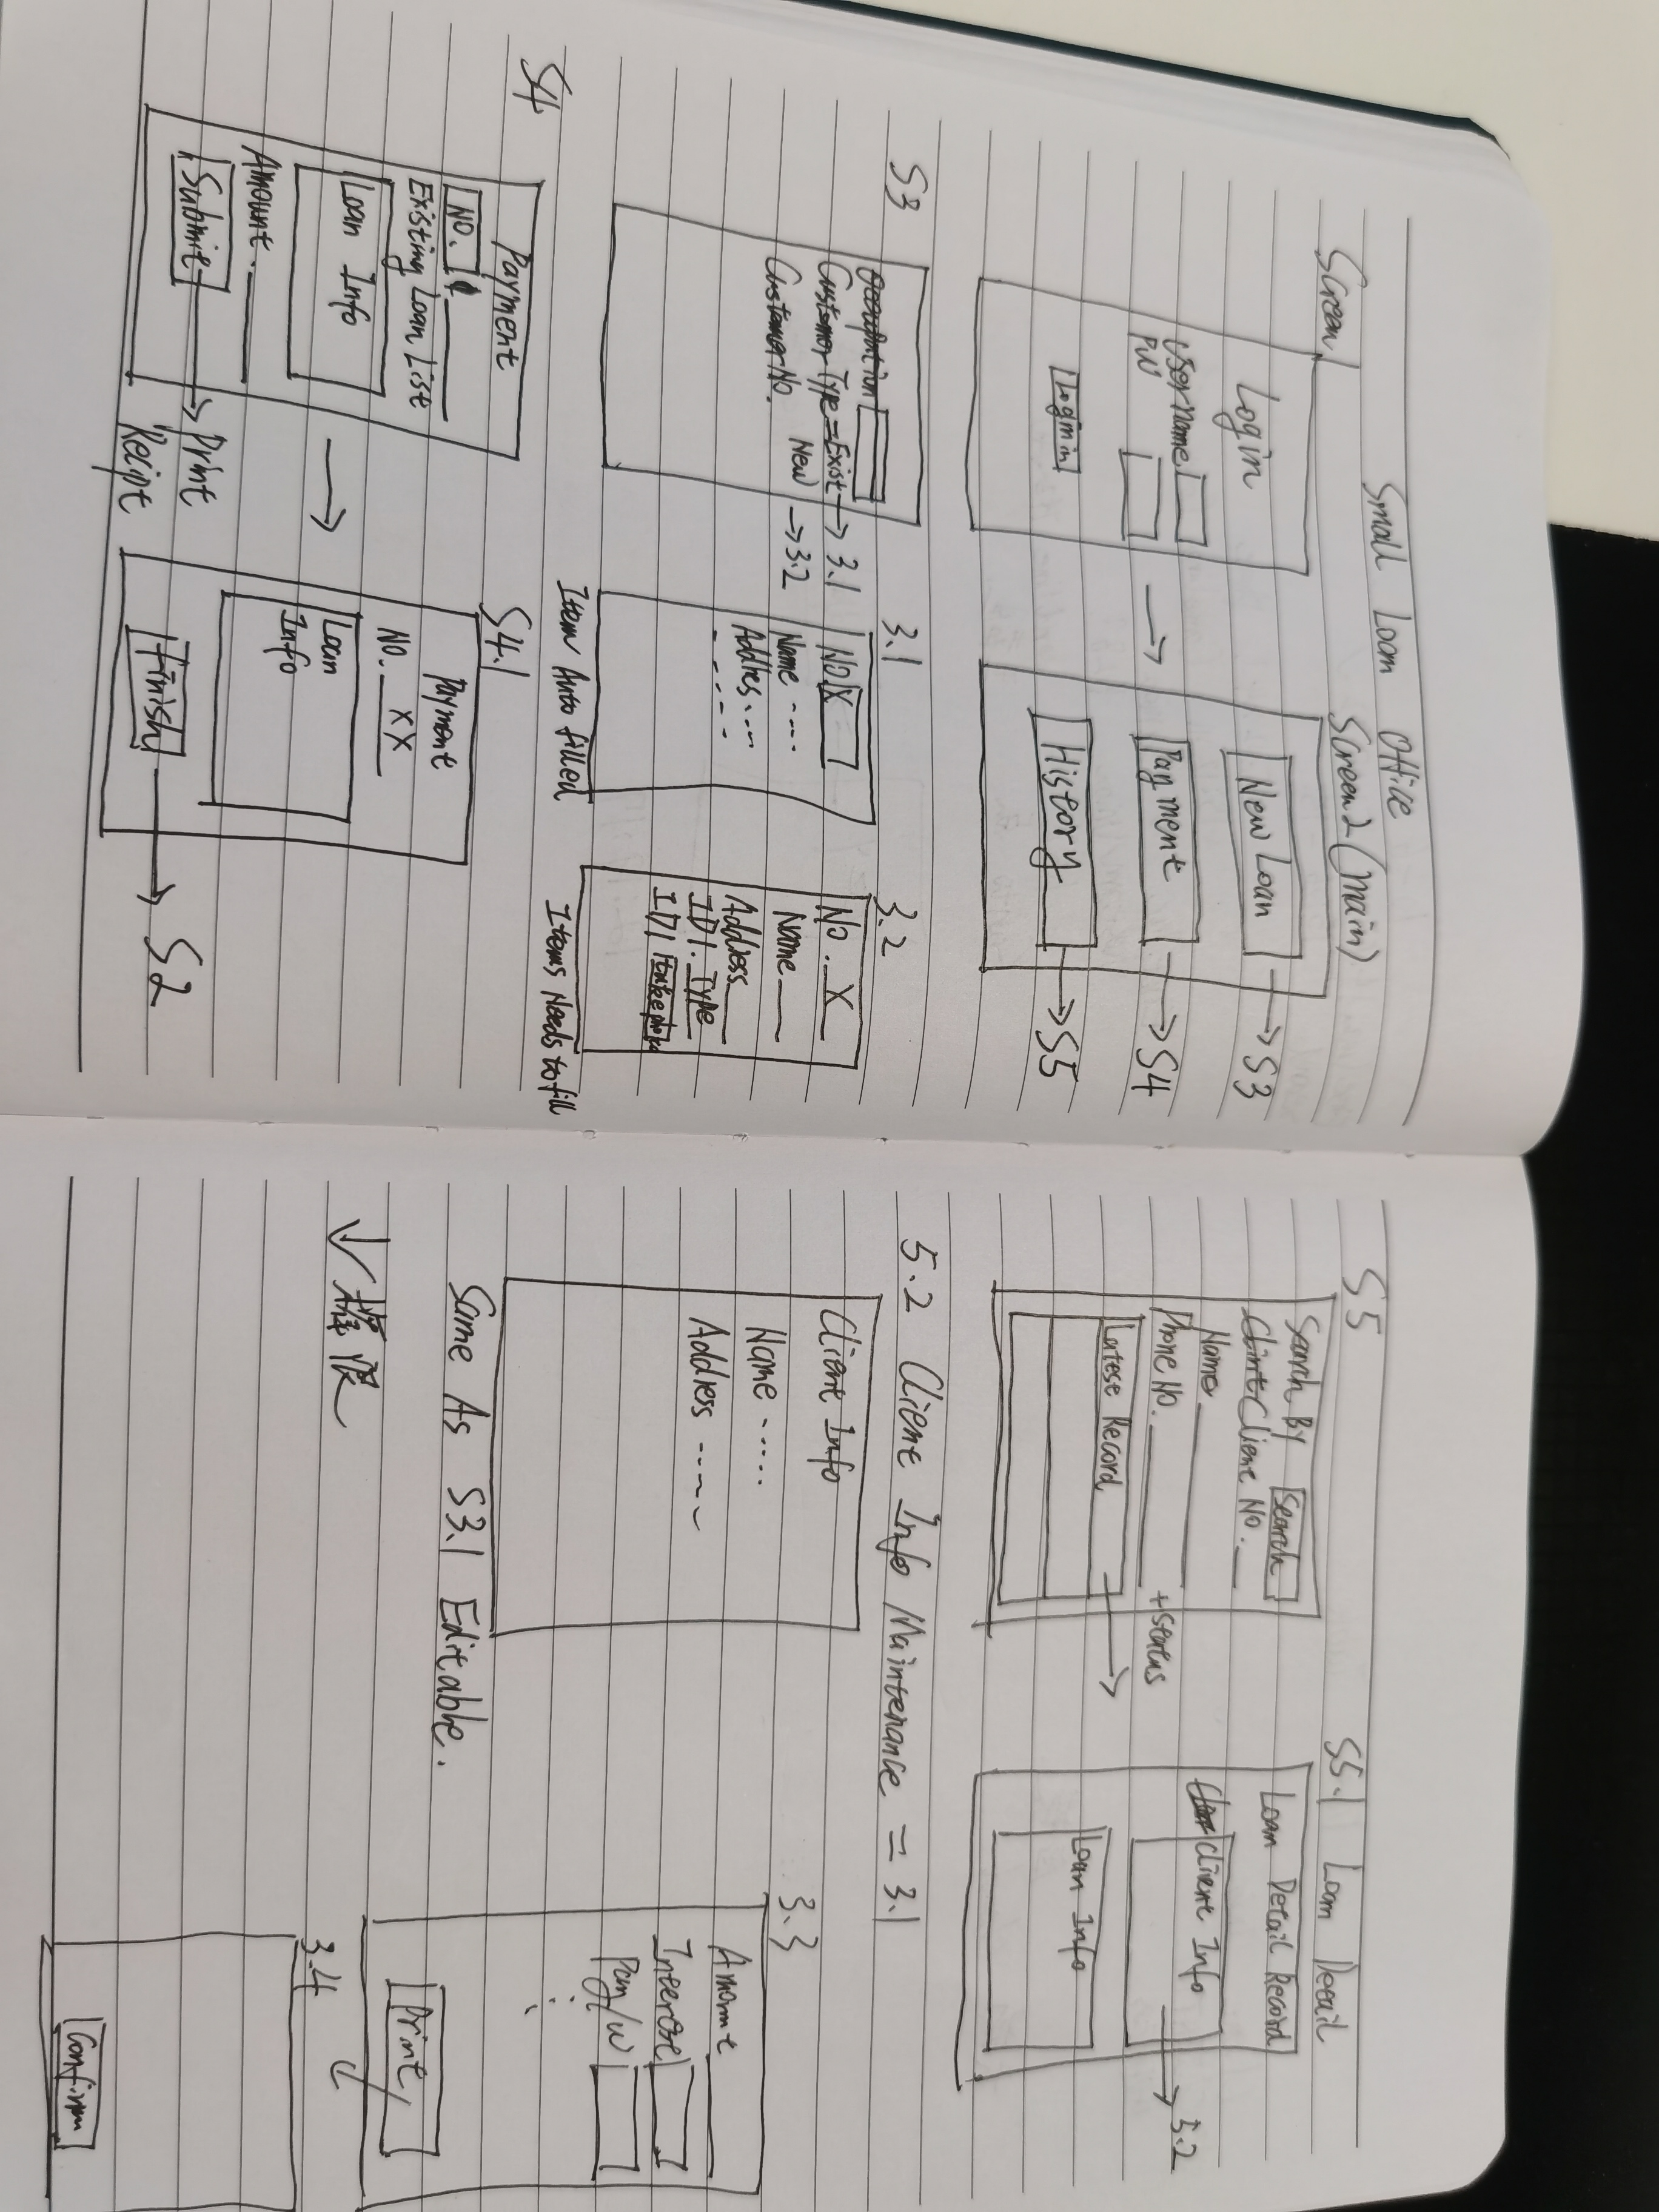 Small Loan Office
Screen 1
Login
Username
PW
Login in
Screen 2 (Main)
New Loan → S3
Payment → S4
History → S5
S3
Occupation
Customer Type = Exist → 3.1
New → 3.2
Customer No.
3.1
No. X
Name ----
Addres. ---
-----
Item Auto filled
3.2
No. X
Name
Address
ID1. Type
ID1 take photo
Items Needs to fill
S4
Payment
NO.
Existing Loan List
Loan Info
Amount.
Submit → Print
Recipt
S4.1
Payment
No. XX
Loan
Info
Finish → S2
S5
Search By Search
Client Client No.
Name
Phone No. + Status
Latese Record
S5.1 Loan Detail
Loan Detail Record
Client Info → 5.2
Loan Info
5.2 Client Info Maintenance = 3.1
Client Info
Name -----
Address -----
Same As S3.1 Editable.
↓ 权限
3.3
Amount
Interest
Pay/w
Print
3.4
Confirm